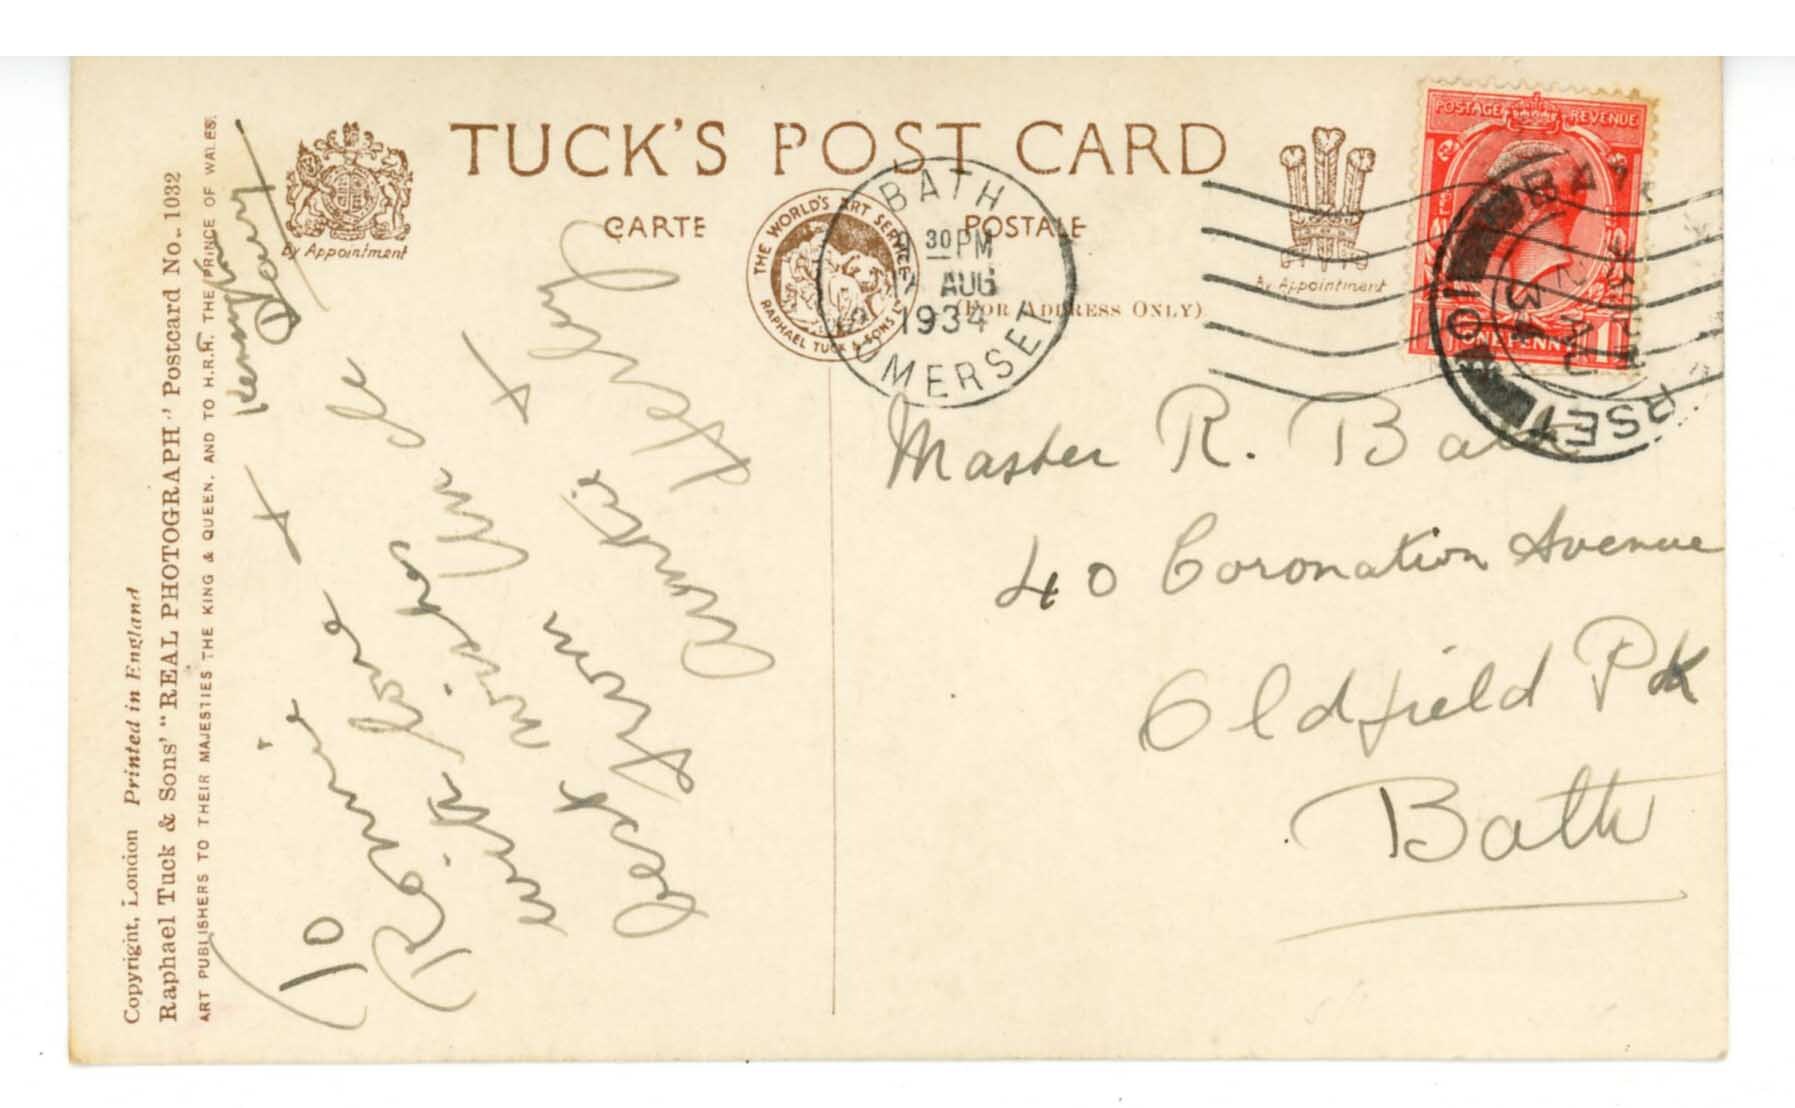 TUCK'S POST CARD
CARTE POSTALE
(FOR ADDRESS ONLY)
By Appointment
By Appointment
THE WORLD'S ART SERVICE
RAPHAEL TUCK & SONS
BATH
30 PM
AUG
1934
SOMERSET
POSTAGE REVENUE
ONE PENNY
Copyright, London Printed in England
Raphael Tuck & Sons' "REAL PHOTOGRAPH" Postcard No. 1032
ART PUBLISHERS TO THEIR MAJESTIES THE KING & QUEEN, AND TO H.R.H. THE PRINCE OF WALES.
To
Ronnie
with love +
best wishes
from
Auntie +
Master R.
40 Coronation Avenue
Oldfield Pk
Bath